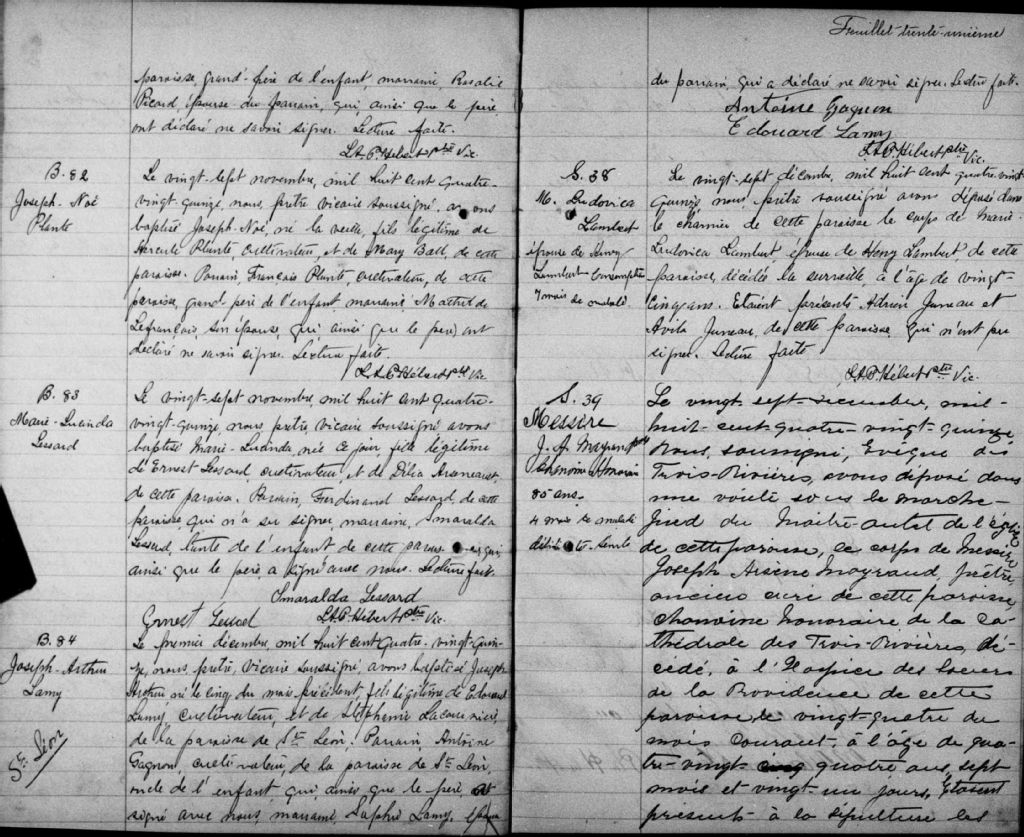 paroisse, grand-père de l'enfant, marraine, Rosalie
Picard, épouse du parrain, qui, ainsi que le père,
ont déclaré ne savoir signer. Lecture faite.
L.A.P. Hébert ptre Vic.
B. 82
Joseph-Noé
Plante
Le vingt-sept novembre, mil huit cent quatre-
vingt-quinze, nous, prêtre vicaire soussigné, avons
baptisé Joseph-Noé, né la veille, fils légitime de
Hercule Plante, cultivateur, et de Mary Ball, de cette
paroisse. Parrain, François Plante, cultivateur, de cette
paroisse, grand-père de l'enfant, marraine
Lefrançois, son épouse, qui ainsi que le père, ont
déclaré ne savoir signer. Lecture faite.
L.A.P. Hébert ptre Vic.
B. 83
Marie-Lucinda
Lessard
Le vingt-sept novembre, mil huit cent quatre-
vingt-quinze, nous prêtre vicaire soussigné avons
baptisé Marie-Lucinda, née ce jour, fille légitime
d'Ernest Lessard, cultivateur, et de Délia Arseneault,
de cette paroisse. Parrain, Ferdinand Lessard, de cette
paroisse qui n'a su signer, marraine, Smaralda
Lessard, tante de l'enfant de cette paroisse qui
ainsi que le père, a signé avec nous. Lecture fait.
Smaralda Lessard
Ernest Lessard L.A.P. Hébert ptre Vic.
B. 84
Joseph-Arthur
Lamy
Ste Léon
Le premier décembre, mil huit cent quatre-vingt-quin-
ze, nous, prêtre, vicaire soussigné, avons baptisé Joseph
Arthur né le cinq du mois précédent, fils légitime de Edouard
Lamy, cultivateur, et de Stéphenie
de la paroisse de St Léon. Parrain, Antoine
Gagnon, cultivateur, de la paroisse de St Léon,
oncle de l'enfant, qui, ainsi que le père, ont
signé avec nous, marraine, Lamy, épouse
Feuillet trente-unième
du parrain, qui a déclaré ne savoir signer. Lecture fait.
Antoine Gagnon
Edouard Lamy
L.A.P. Hébert ptre Vic.
S. 38
M. Ludovica
Lambert
épouse de Henry
Lambert Consomption
7 mois de maladi
Le vingt-sept décembre, mil huit cent quatre-vingt
quinze nous prêtre soussigné avons déposé dans
le charnier de cette paroisse le corps de Marie-
Ludovica Lambert, épouse de Henry Lambert, de cette
paroisse, décédée la surveille, à l'âge de vingt-
cinq ans. Etaient présents Adrien Juneau et
Avila Juneau, de cette paroisse, qui n'ont pu
signer. Lecture faite
L.A.P. Hébert ptre Vic.
S. 39
Messire
J. A. Mayrand ptre
Chanoine Honorair
85 ans.
4 mois de maladi
débilité-senile
Le vingt-sept-décembre, mil-
huit-cent-quatre-vingt-quinze,
Nous, soussigné, Evêque des
Trois-Rivières, avons déposé dans
une voûte sous le marche-
pied du Maître-autel de l'église
de cette paroisse, le corps de Messire
Joseph Arsène Mayrand, prêtre,
ancien curé de cette paroisse,
Chanoine Honoraire de la Ca-
thédrale des Trois-Rivières, dé-
cédé, à l'Hospice des Soeurs
de la Providence de cette
paroisse, le vingt-quatre du
mois courant, à l'âge de qua-
tre-vingt quatre ans, sept
mois et vingt-un jours, Etaient
présents à la sépulture les